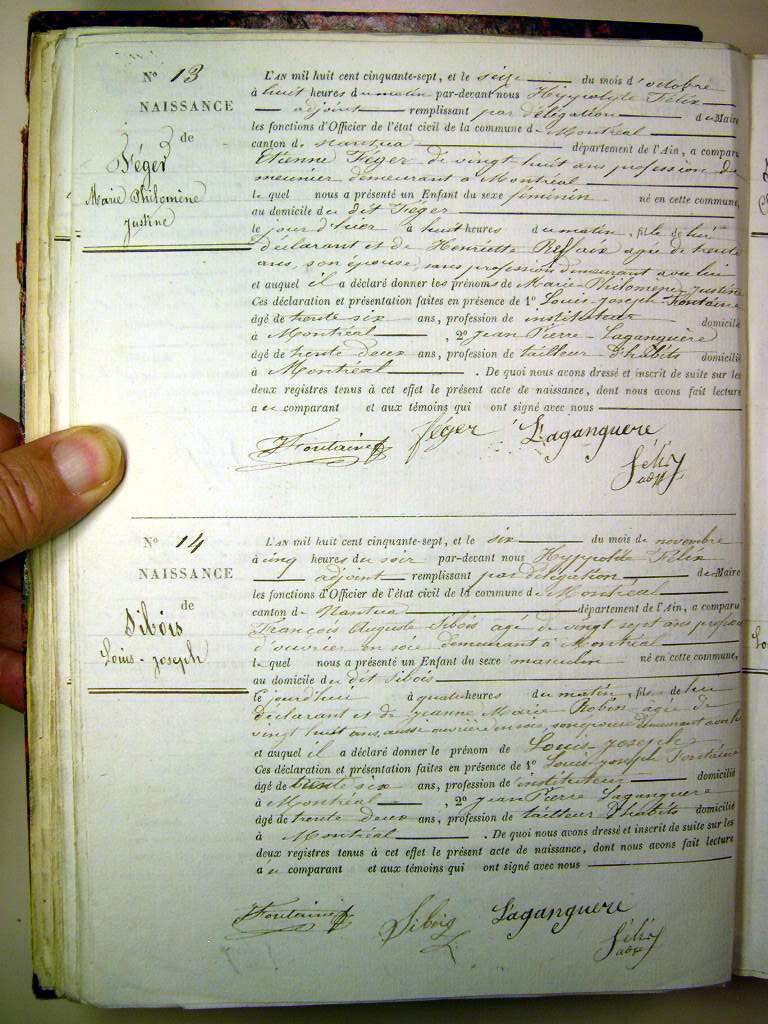 N° 13
NAISSANCE
de
Féger
Marie Philomène
Justine
L'AN mil huit cent cinquante-sept, et le seize du mois d'octobre
à huit heures du matin par-devant nous Hyppolyte Félix
adjoint remplissant par délégation du Maire
les fonctions d'Officier de l'état civil de la commune de Montréal
canton de Nantua département de l'Ain, a comparu
Etienne Féger de vingt huit ans profession de
meunier demeurant à Montréal
lequel nous a présenté un Enfant du sexe féminin né en cette commune,
au domicile du dit Féger
le jour d'hier à huit heures du matin, fille de lui
déclarant et de Henriette agée de trente
ans, son épouse, sans profession demeurant avec lui
et auquel il a déclaré donner les prénoms de Marie-Philomène-Justine
Ces déclaration et présentation faites en présence de 1° Louis-Joseph Fontaine
âgé de trente six ans, profession de instituteur domicilié
à Montréal, 2° Jean Pierre Laganguere
âgé de trente deux ans, profession de tailleur d'habits domicilié
à Montréal. De quoi nous avons dressé et inscrit de suite sur les
deux registres tenus à cet effet le présent acte de naissance, dont nous avons fait lecture
a u comparant et aux témoins qui ont signé avec nous
JFontaine féger Laganguere
Félix
adj
N° 14
NAISSANCE
de
Sibois
Louis-Joseph
L'AN mil huit cent cinquante-sept, et le six du mois de novembre
à cinq heures du soir par-devant nous Hyppolite Félix
adjoint remplissant par délégation du Maire
les fonctions d'Officier de l'état civil de la commune de Montréal
canton de Nantua département de l'Ain, a comparu
François Auguste Sibois agé de vingt sept ans profession
d'ouvrier en soie demeurant à Montréal
lequel nous a présenté un Enfant du sexe masculin né en cette commune,
au domicile du dit Sibois
le jourd'hui à quatre heures du matin, fils de lui
déclarant et de Jeanne Marie Robin agée de
vingt huit ans, aussi ouvrière en soie, son épouse demeurant avec lui
et auquel il a déclaré donner le prénom de Louis-Joseph
Ces déclaration et présentation faites en présence de 1° Louis-Joseph Fontaine
âgé de trente six ans, profession de instituteur domicilié
à Montréal, 2° Jean Pierre Laganguere
âgé de trente deux ans, profession de tailleur d'habits domicilié
à Montréal. De quoi nous avons dressé et inscrit de suite sur les
deux registres tenus à cet effet le présent acte de naissance, dont nous avons fait lecture
a u comparant et aux témoins qui ont signé avec nous
JFontaine Sibois Laganguere
Félix
adj